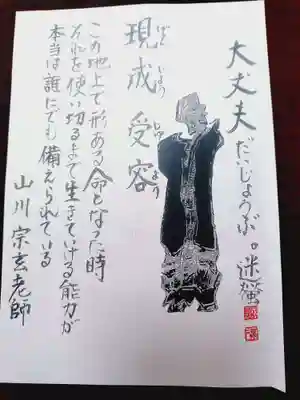 大丈夫
だいじょうぶ。迷螢
現成受容
げんじょうじゅよう
この地上で形ある命となった時
それを使い切るまで生きていける能力が
本当は誰にでも備えられている
山川宗玄老師